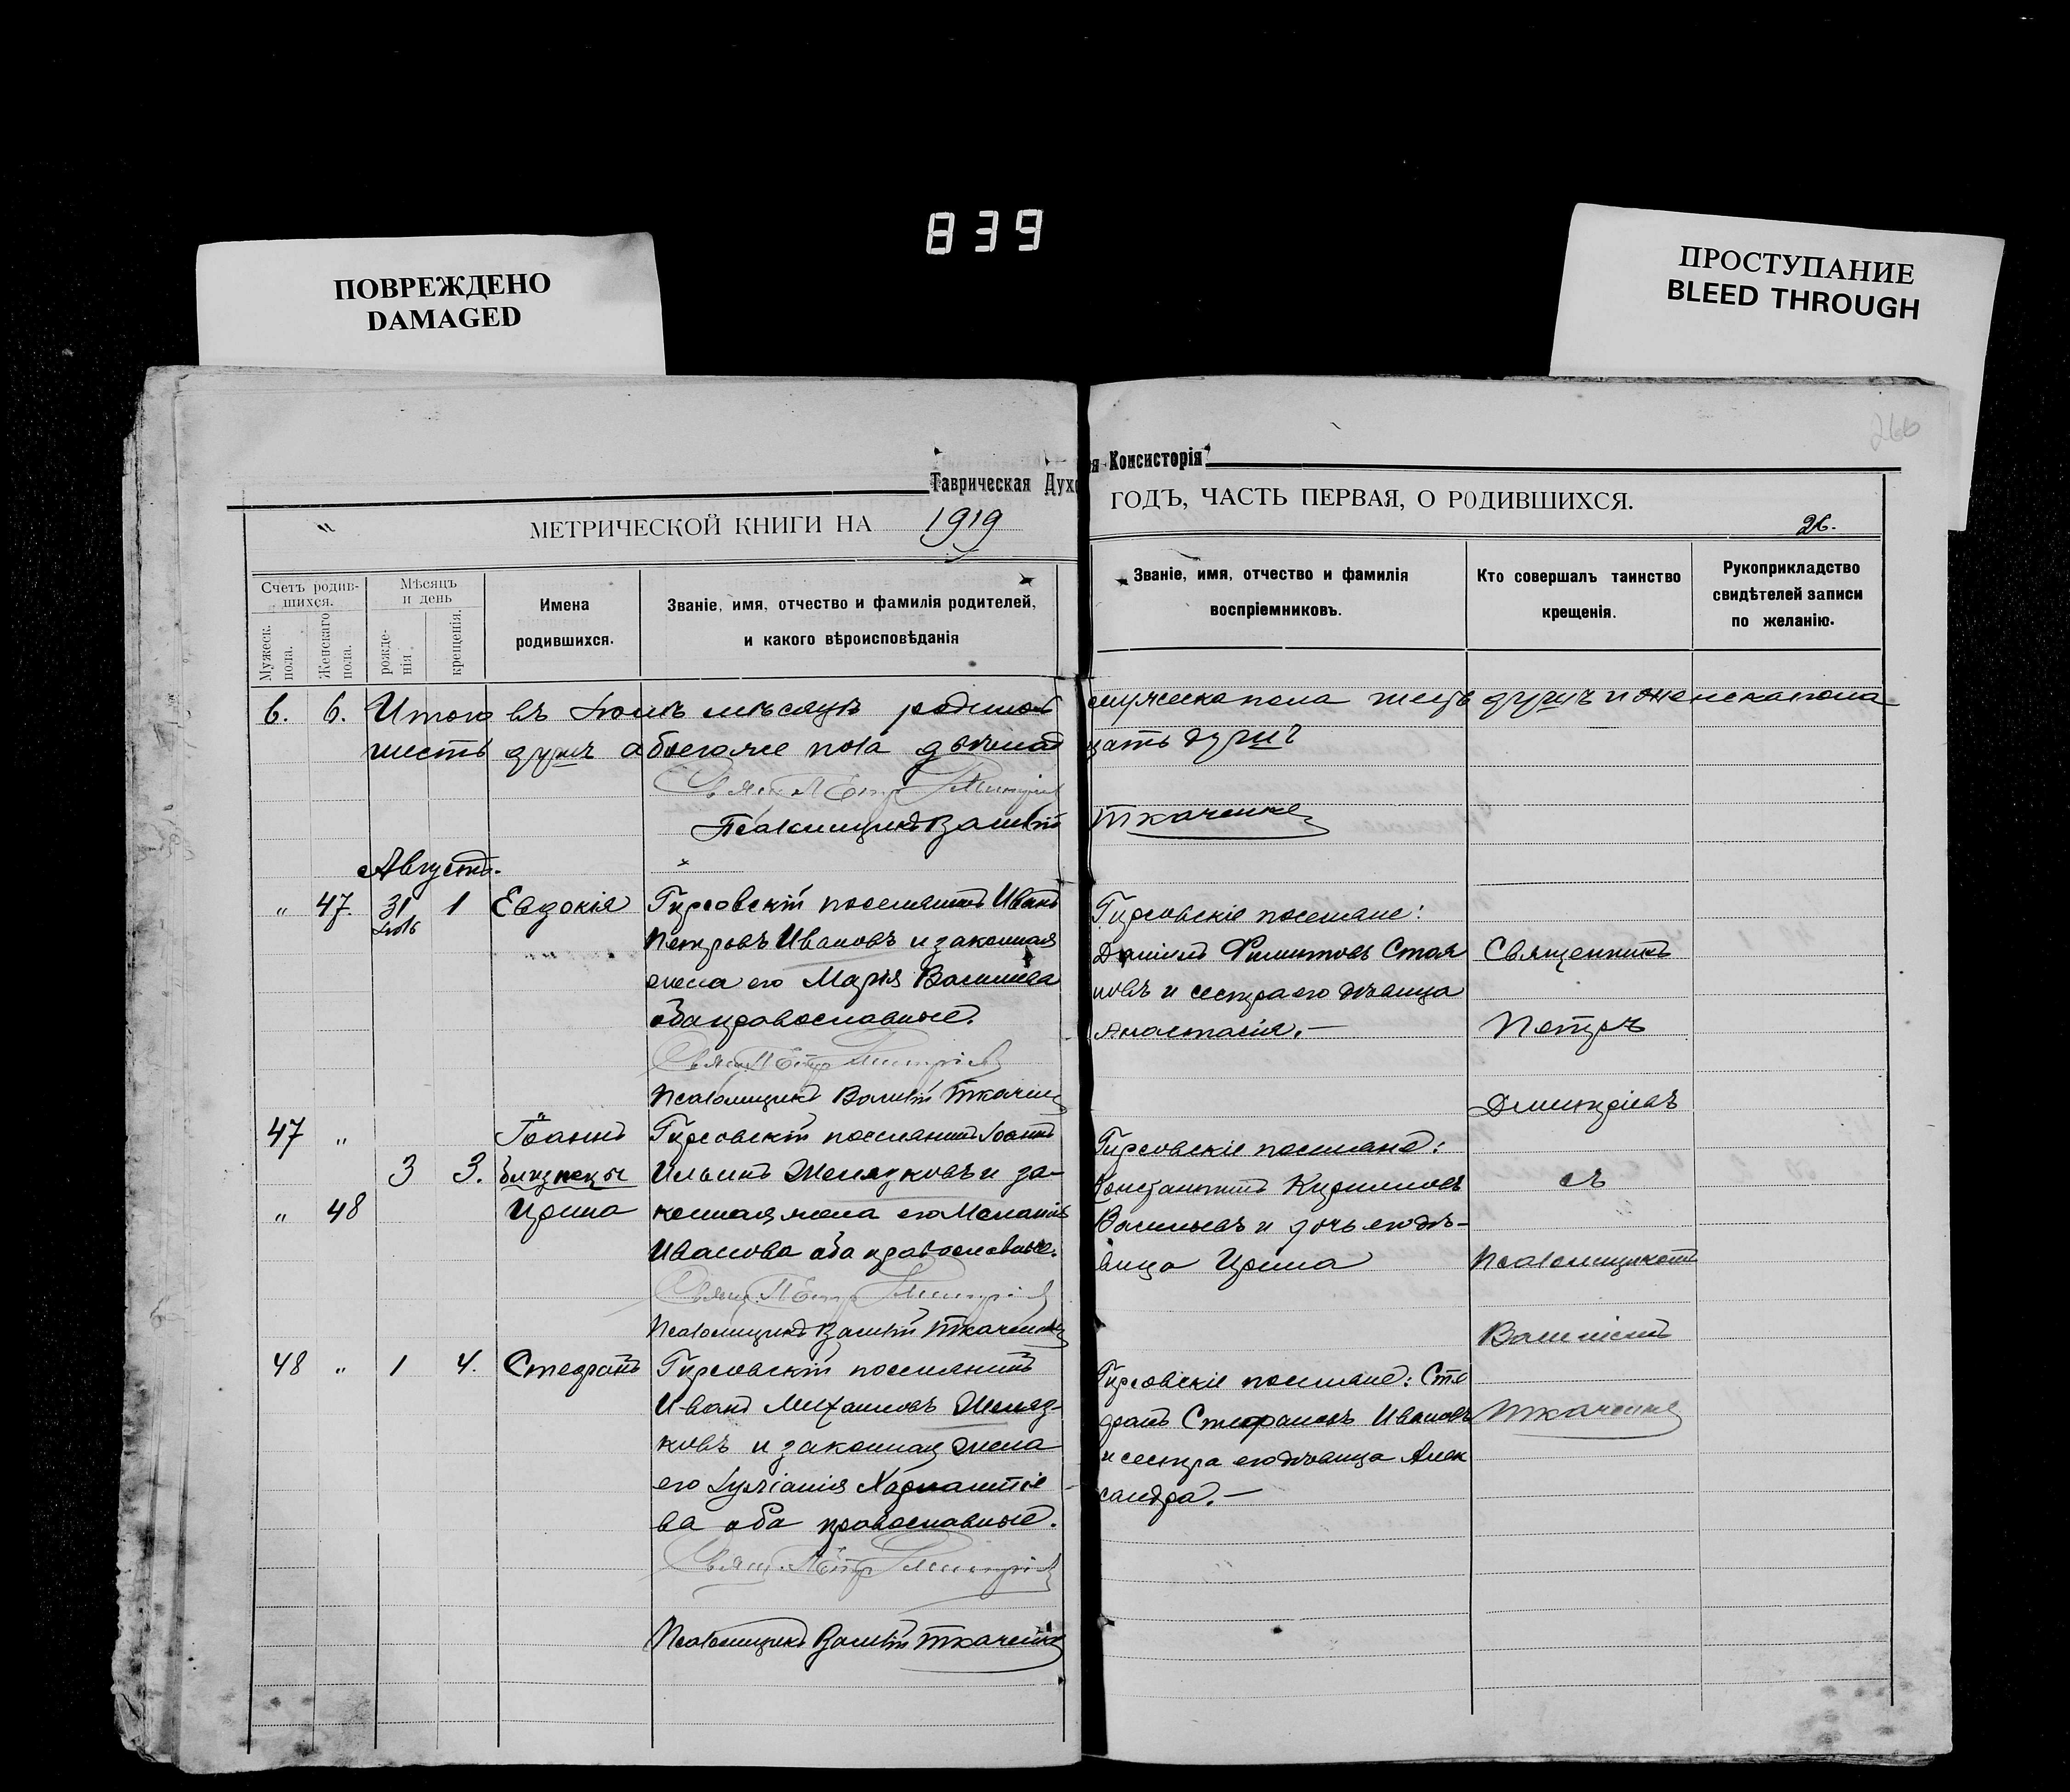 839
ПОВРЕЖДЕНО
DAMAGED
ПРОСТУПАНИЕ
BLEED THROUGH
266
Таврическая Духо
я Консисторія
"
МЕТРИЧЕСКОЙ КНИГИ НА 1919
ГОДЪ, ЧАСТЬ ПЕРВАЯ, О РОДИВШИХСЯ.
26.
Счетъ родив-
шихся.
Мужеск. пола.
Женскаго пола.
Мѣсяцъ
и день
рожде-
нія.
крещенія.
Имена
родившихся.
Званіе, имя, отчество и фамилія родителей,
и какого вѣроисповѣданія
Званіе, имя, отчество и фамилія
воспріемниковъ.
Кто совершалъ таинство
крещенія.
Рукоприкладство
свидѣтелей записи
по желанію.
6. 6. Итого въ Іюлѣ мѣсяцѣ родилось мужеска пола шесть душъ и женска пола
шесть душъ обоего же пола двѣнад
цать душъ
Свящ. Петр Дмитріев
Псаломщикъ Василій Ткаченко
Августъ.
" 47. 31 Іюль 1 Евдокія
Гирсовскій поселянинъ Иванъ
Петровъ Ивановъ и законная
жена его Марія Васильева
оба православные.
Свящ. Петр Дмитріев
Псаломщикъ Василій Ткаченко
Гирсовскіе поселяне:
Даніилъ Филиповъ Стоя
новъ и сестра его дѣвица
Анастасія.—
47 " Іоаннъ
3 3. близнецы
" 48 Ирина
Гирсовскій поселянинъ Іоаннъ
Ильинъ Желязковъ и за-
конная жена его Меланія
Иванова оба православные.
Свящ. Петр Дмитріев
Псаломщикъ Василій Ткаченко
Гирсовскіе поселяне:
Константинъ Кириловъ
Васильевъ и дочь его дѣ-
вица Ирина
48 " 1 4. Стефанъ
Гирсовскій поселянинъ
Иванъ Михаиловъ Желяз-
ковъ и законная жена
его Іуліанія Харлампіе
ва оба православные.
Свящ. Петр Дмитріев
Псаломщикъ Василій Ткаченко
Гирсовскіе поселяне: Сте
фанъ Стефановъ Ивановъ
и сестра его дѣвица Алек
сандра.—
Священникъ
Петръ
Дмитріевъ
съ
Псаломщикомъ
Василіемъ
Ткаченко